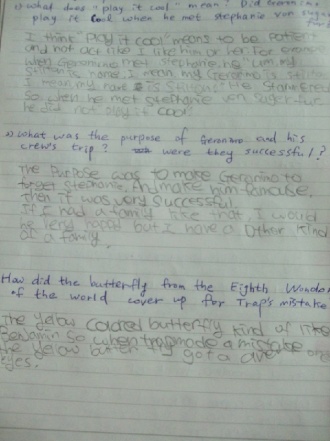 1) what does "play it cool" mean? Did Geronimo
play it cool when he met stephanie von sugar
I think "Play it cool" means to be Patient
and not act like I like him or her. For example
when Geronimo met Stephanie, he "um, my
Stilton is name. I mean my Geronimo is Stilton
I mean, my name is Stilton." He
So when he met stephanie von Sugar-fur
he did not play it cool.
2) what was the purpose of Geronimo and his
crew's trip? were they successful?
The Purpose was to make Geronimo to
forget Stephanie. And make him famouse.
then it was very successful.
If I had a family like that, I would
be very happy but I have a Other kind
of a family.
How did the butterfly from the Eighth Wonder
of the world cover up for Trap's mistake
The yellow colored butterfly kind of like
Benjamin so when trap made a mistake
the yellow butter got a
eyes.